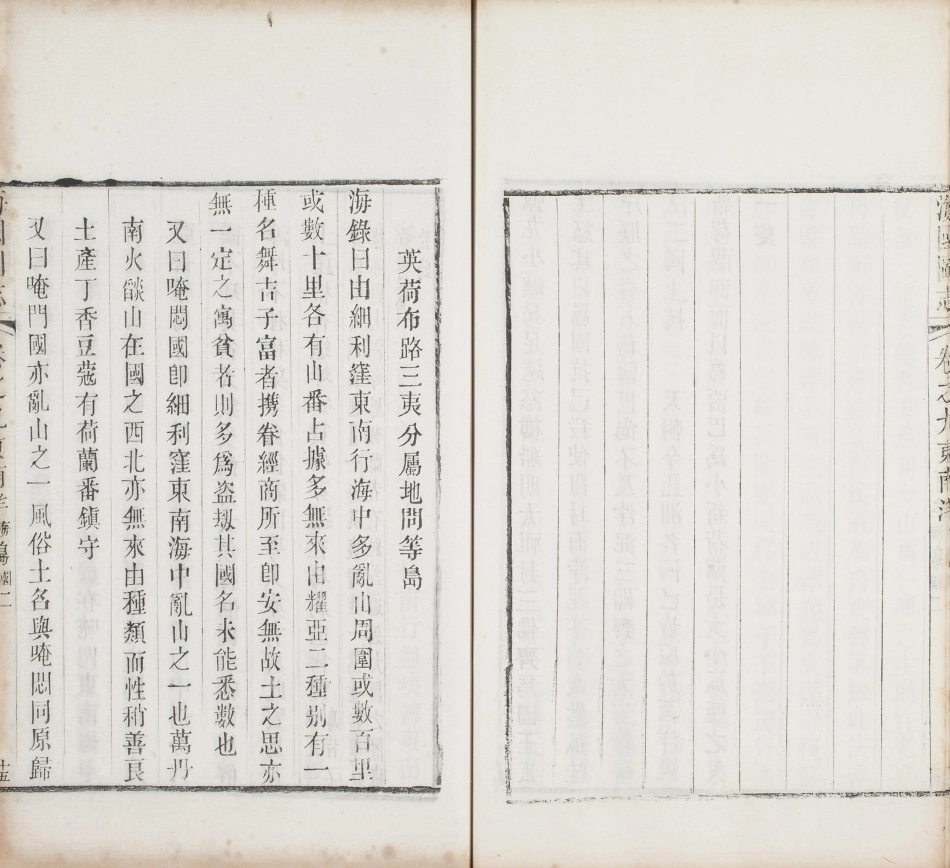 海國圖志
卷之九東南洋
英荷布路三夷分屬地問等島
海錄曰由細利窪東南行海中多亂山周圍或數百里
或數十里各有山番占據多無來由耀亞二種别有一
種名舞吉子富者攜眷經商所至即安無故土之思亦
無一定之寓貧者則多爲盗刼其國名未能悉數也
又曰唵悶國即細利窪東南海中亂山之一也萬丹
南火燄山在國之西北亦無來由種類而性稍善良
土產丁香豆蔻有荷蘭番鎮守
又曰唵門國亦亂山之一風俗土名與唵悶同原歸
海國圖志
卷之九東南洋海島國二
十五